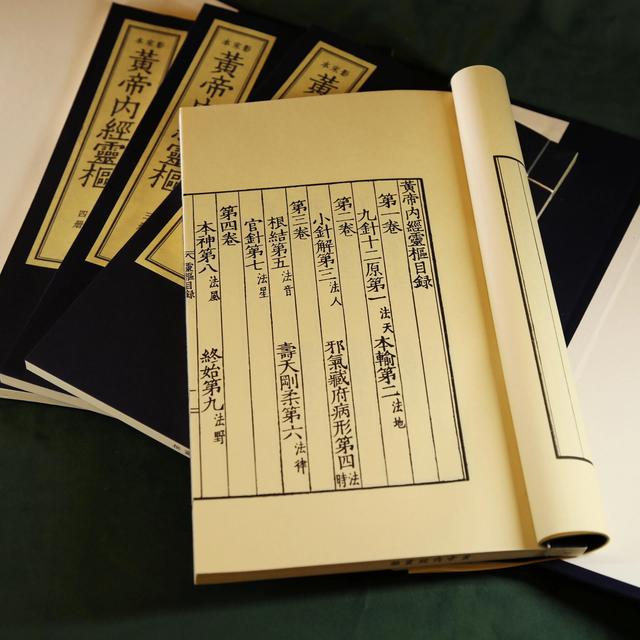 黃帝內經靈樞目録
第一卷
九針十二原第一 法天 本輸第二 法地
第二卷
小針解第三 法人 邪氣藏府病形第四 法時
第三卷
根結第五 法音 壽夭剛柔第六 法律
官針第七 法星
第四卷
本神第八 法風 終始第九 法野
靈樞目録
黃帝內經靈樞
黃帝內
黃